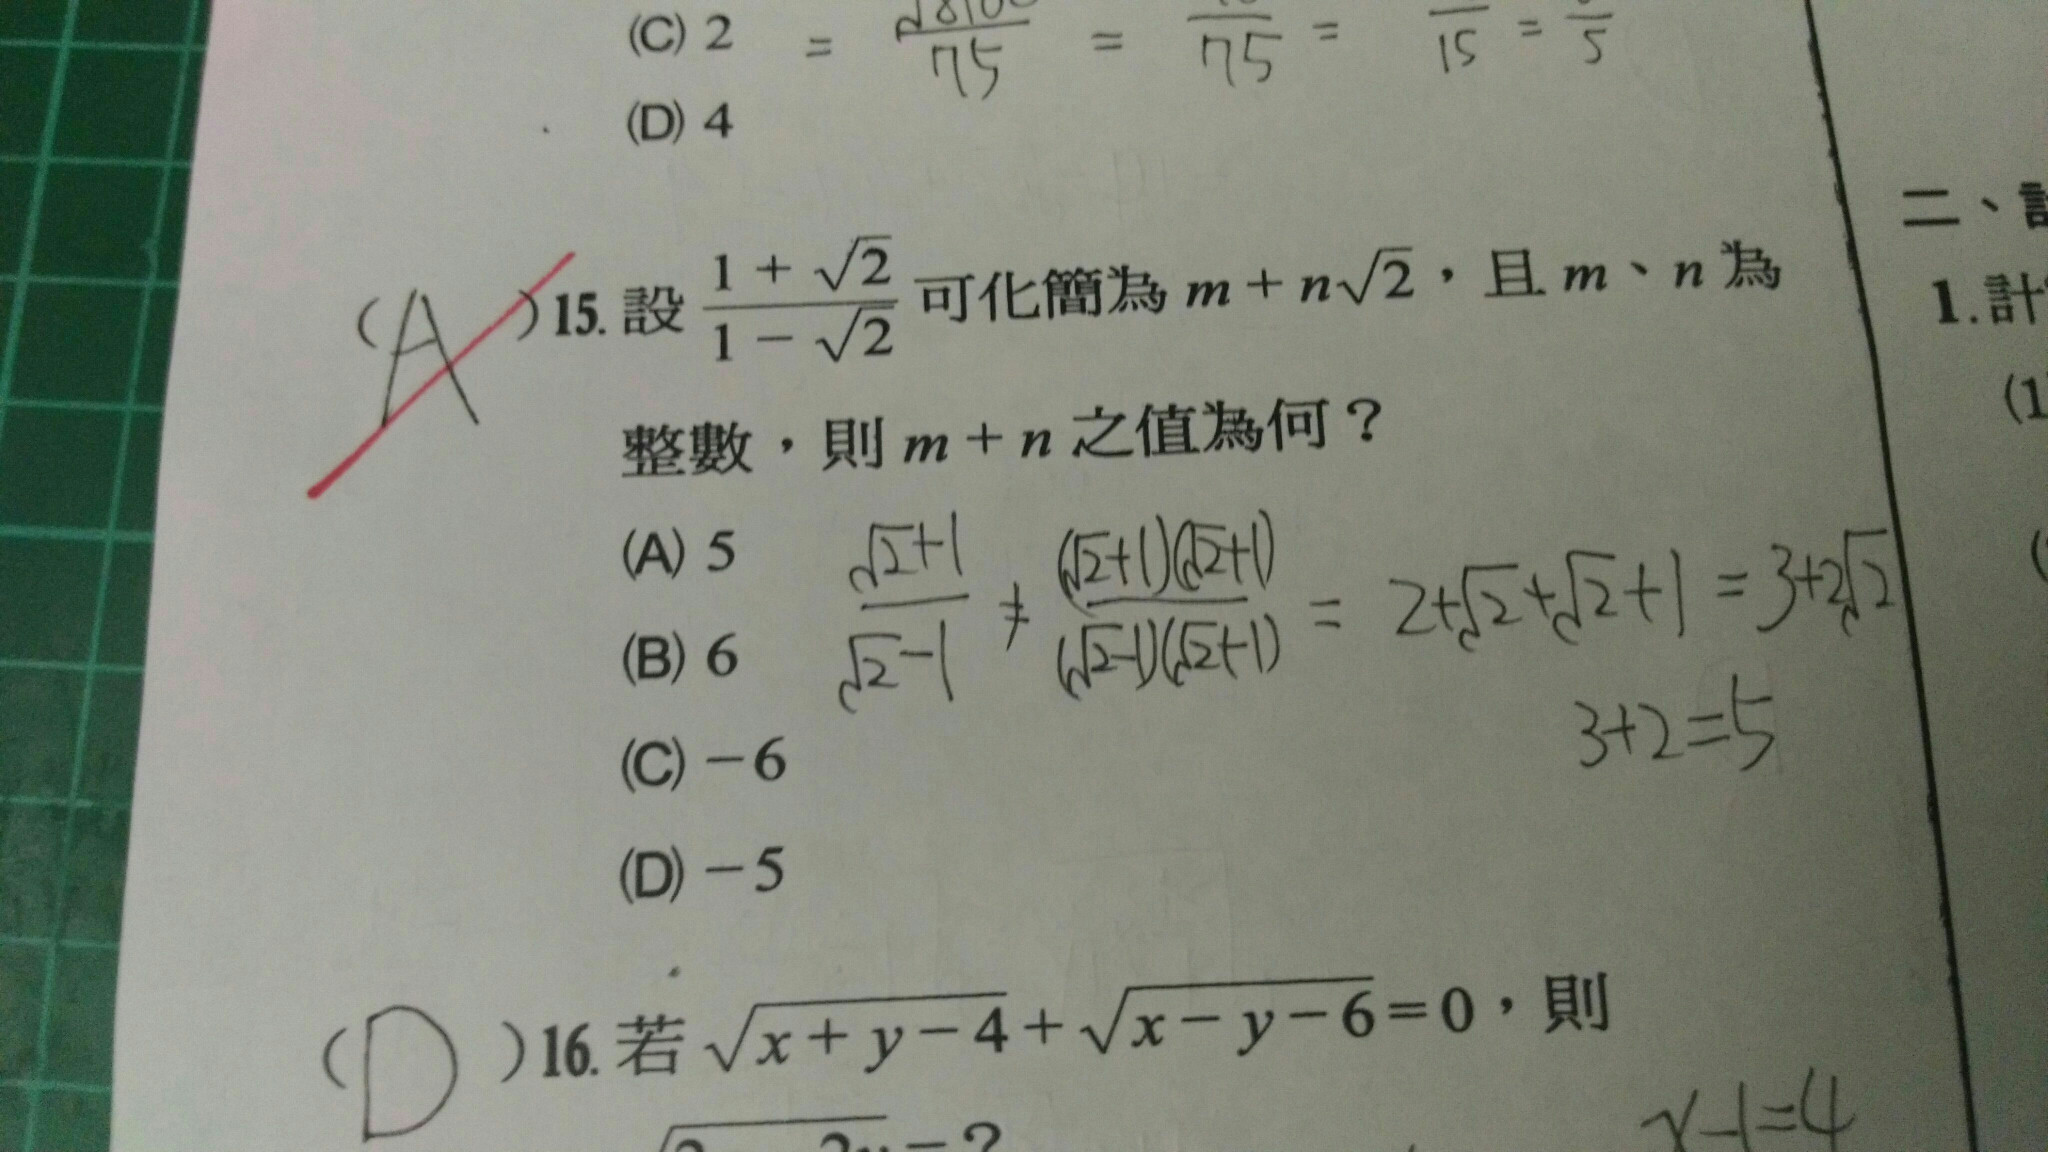 (C) 2 = 75 = 75 = 15 = 5
(D) 4
(A) 15. 設 (1 + √2)/(1 − √2) 可化簡為 m + n√2，且 m、n 為
整數，則 m + n 之值為何？
(A) 5
(B) 6
(C) −6
(D) −5
(√2+1)/(√2−1) ≠ (√2+1)(√2+1)/(√2−1)(√2+1) = 2+√2+√2+1 = 3+2√2
3+2=5
(D) 16. 若 √(x + y − 4) + √(x − y − 6) = 0，則
= ?
x−1=4
二、
1. 計
(1